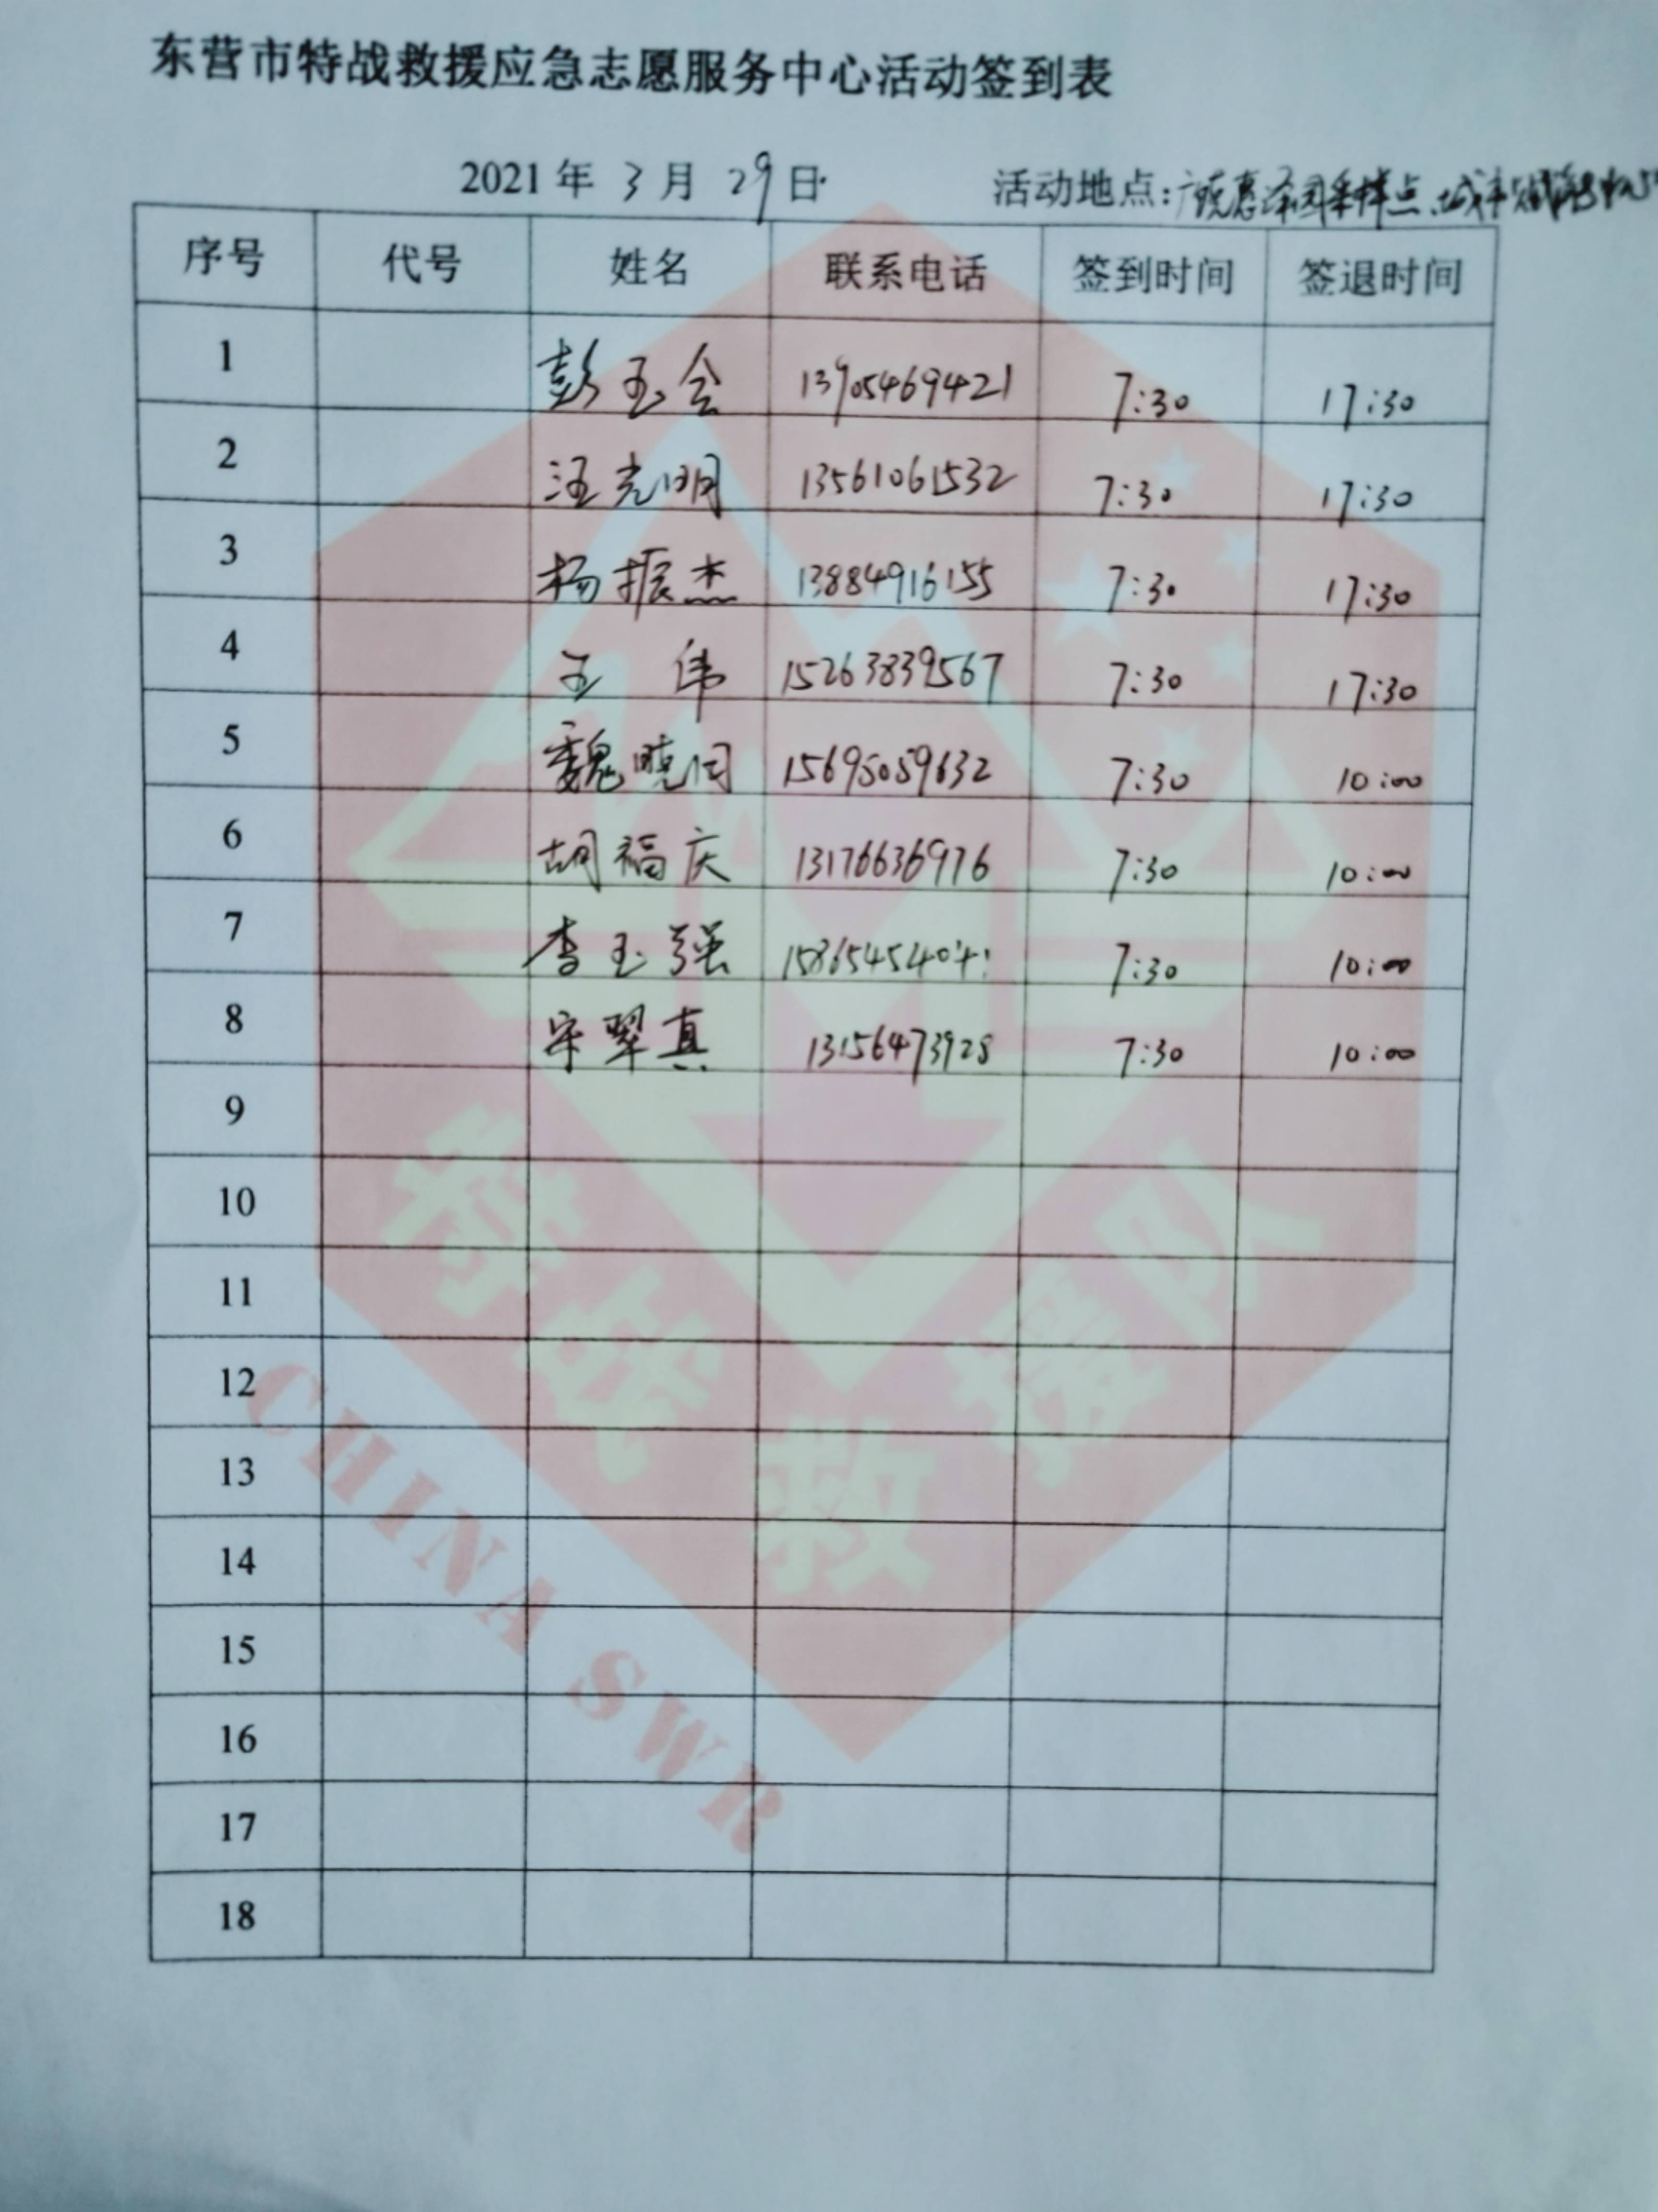 东营市特战救援应急志愿服务中心活动签到表
2021 年 3 月 29 日 活动地点: 广饶惠泽园采样点
序号 代号 姓名 联系电话 签到时间 签退时间
1 彭玉会 13905469421 7:30 17:30
2 汪光明 13561061532 7:30 17:30
3 杨振杰 13884916155 7:30 17:30
4 王伟 15263839567 7:30 17:30
5 魏晓同 15695059632 7:30 10:00
6 胡福庆 13176636976 7:30 10:00
7 李玉强 7:30 10:00
8 宋翠真 13156473928 7:30 10:00
9
10
11
12
13
14
15
16
17
18
特战救援队
CHINA SWR